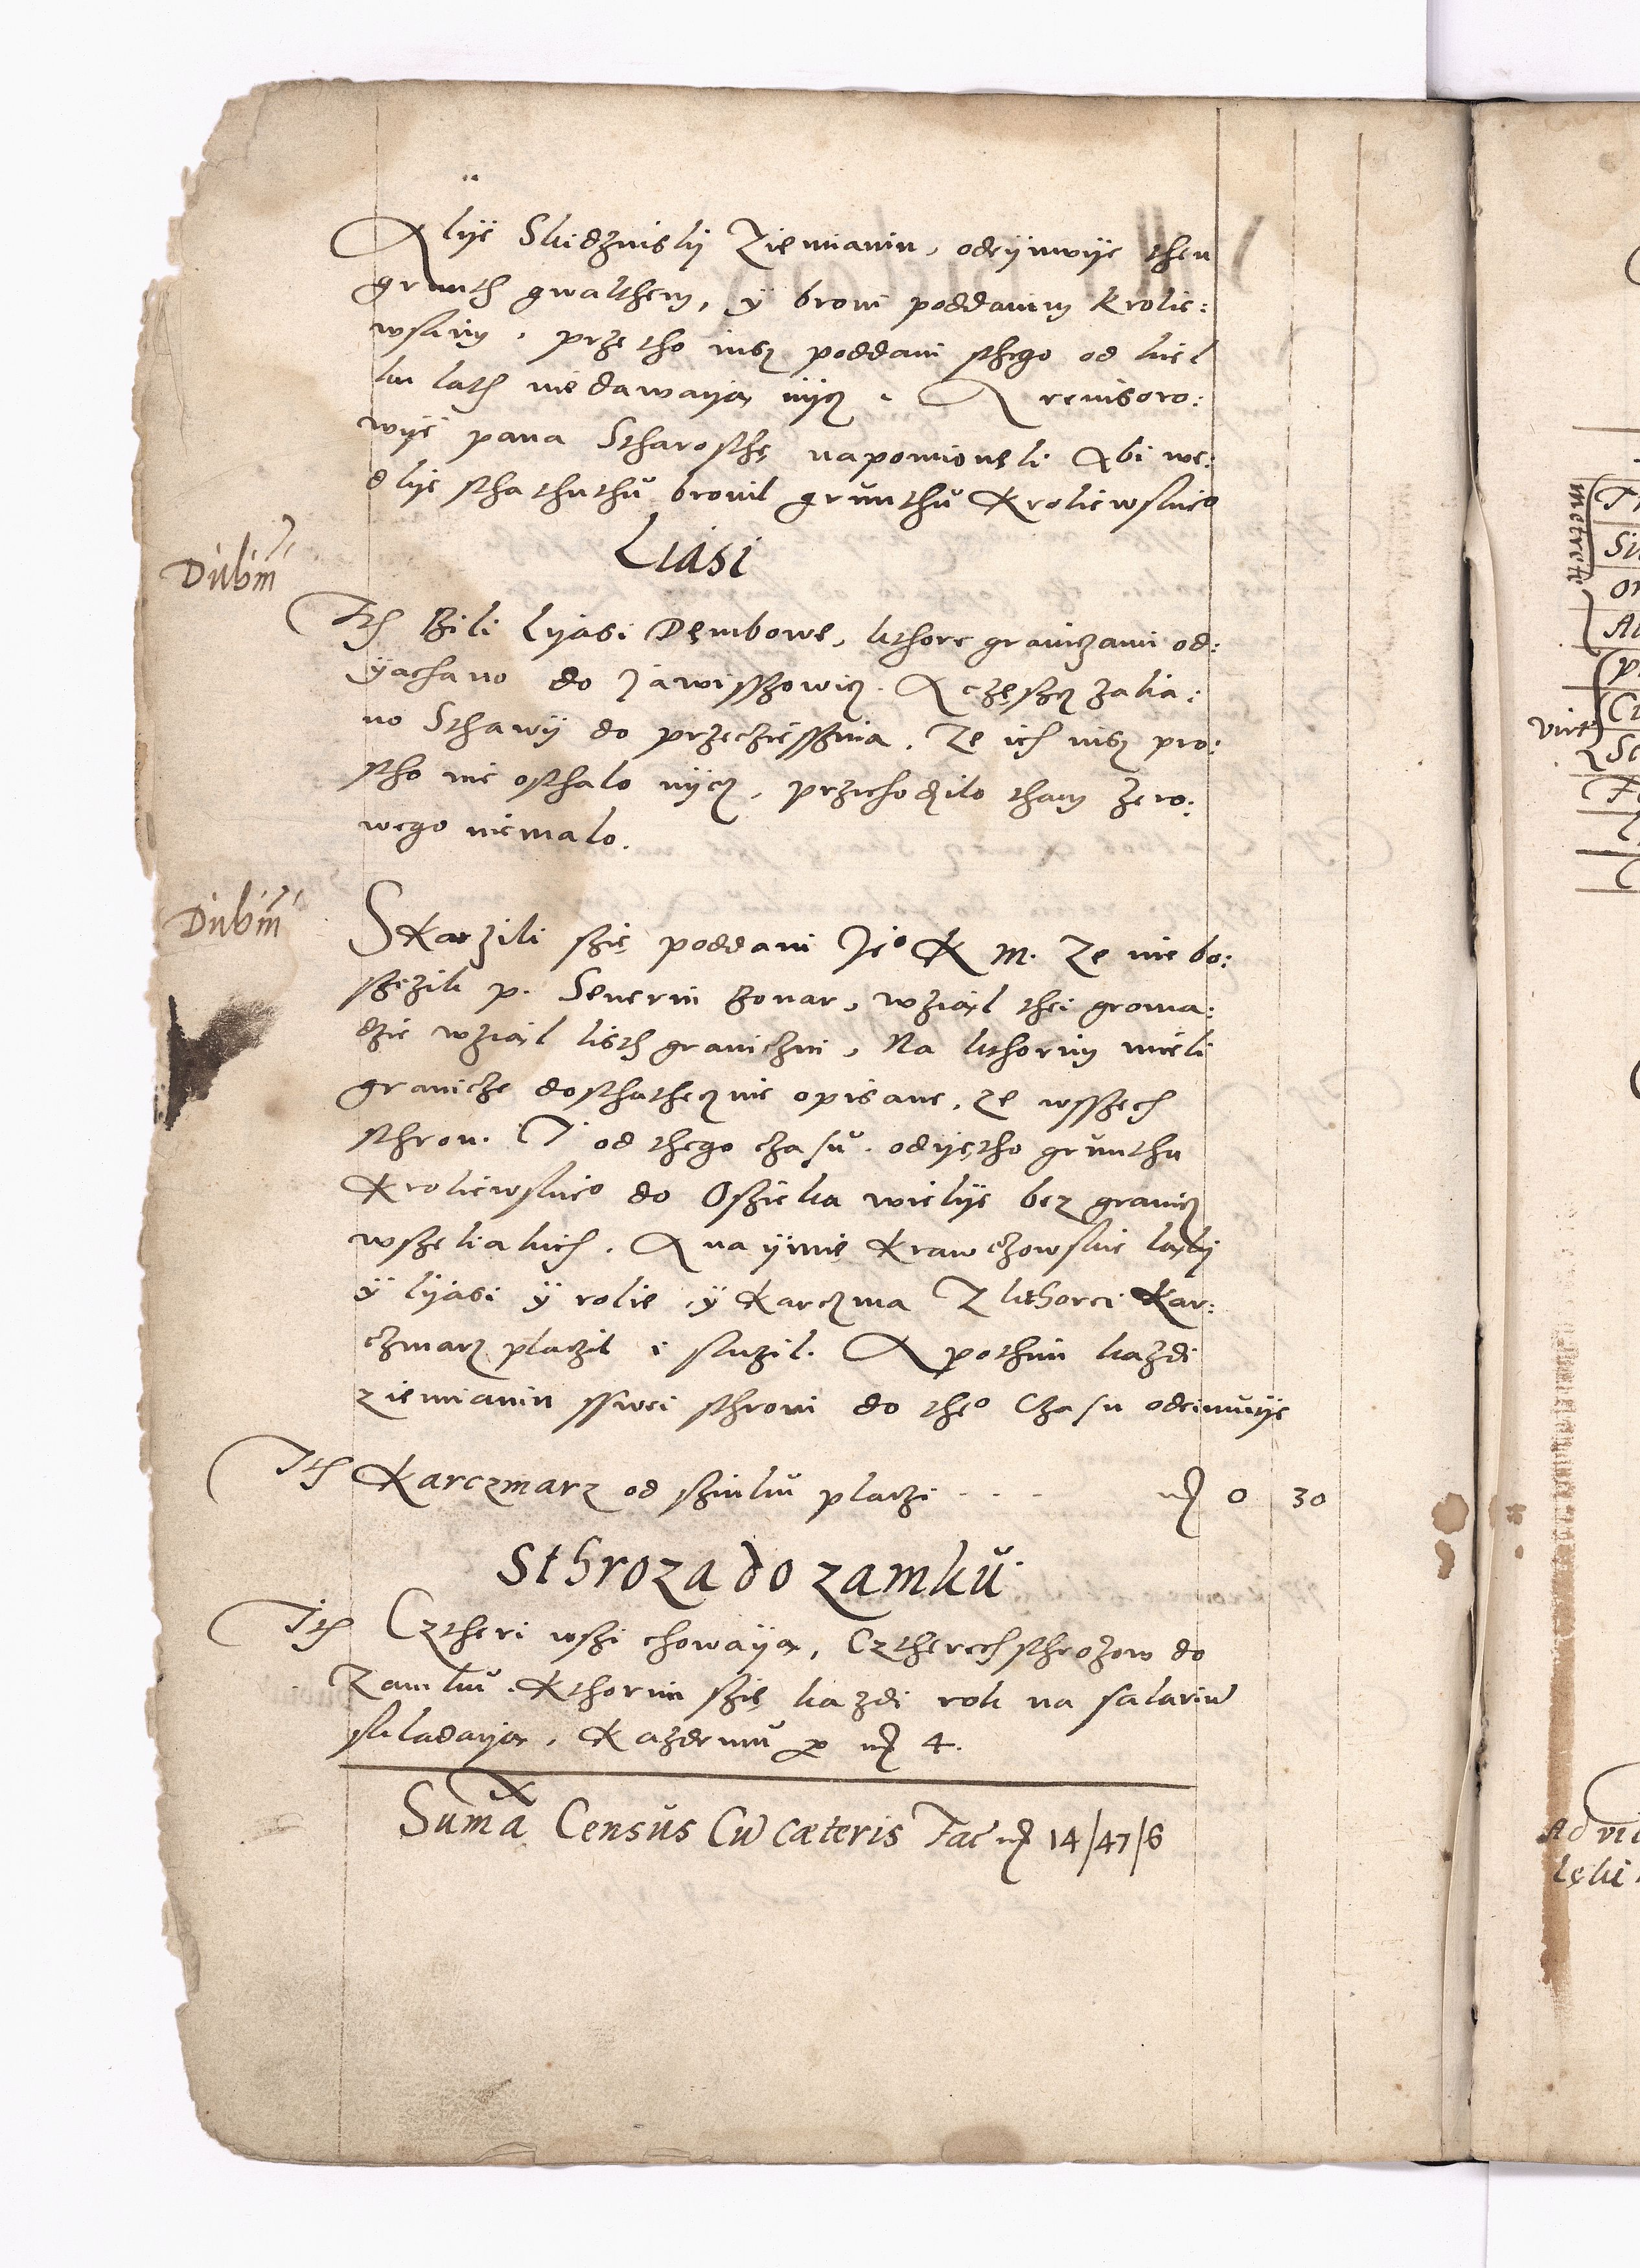 Alye Skidzinsky Ziemianin, odeymuye then
grunth gwalthem, y broni poddanim krolie:
wskim, przetho insz poddani sthego od kiel
ku lath niedawaya nycz. A reuisoro:
wye pana Stharosthę napomioneli Abi we:
dlye sthathuthu bronil grunthu Kroliewskie°
Liasi
Dubiu͂
Ith Bili Lyasi Dembowe, kthore graniczami od:
yachano do Jawisszowicz. A częsz zalia:
no Sthawy do przecziesszina. Ze ich nisz pro:
stho nie osthalo nycz, przichodzilo tham zero:
wego niemalo.
Dubiu͂
Skarzili szię poddani Je° K M. Ze niebo:
szczik p. Seuerin Bonar, wział thei groma:
dzie wział listh graniczni, Na kthorim mieli
granicze dosthathecznie opisane, ze wsszech
sthron. I od thego czasu odyętho grunthu
Kroliewskie° do Osieka wielye bez granicz
wszeliakich. A na ymię Krawczowskie laki
y lyasi y rolie, y Karczma Z kthorei Kar:
czmarz placzil i sluzil. A pothim kazdi
ziemianin sswei sthroni do the° Czasu odeimuiye
Ith Karczmarz od szinku placzi - - - m 0 30
Sthroza do zamku
Ith Cztheri wszi chowaya, Cztherech sthrozow do
Zamku. Kthorim szię kazdi rok na salariu͂
skladaya, Kazdemu po m 4.
Suma Census Cu͂ cæteris Fac m 14/47/6
metrete
virt